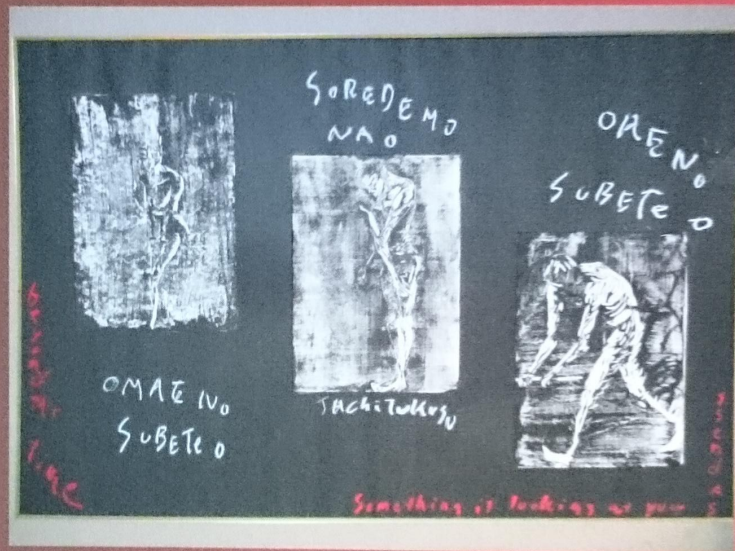 SOREDEMO
NAO
ORE NO
SUBETE O
OMAE NO
SUBETE O
TACHitukusu
TIME
Something is looking at you